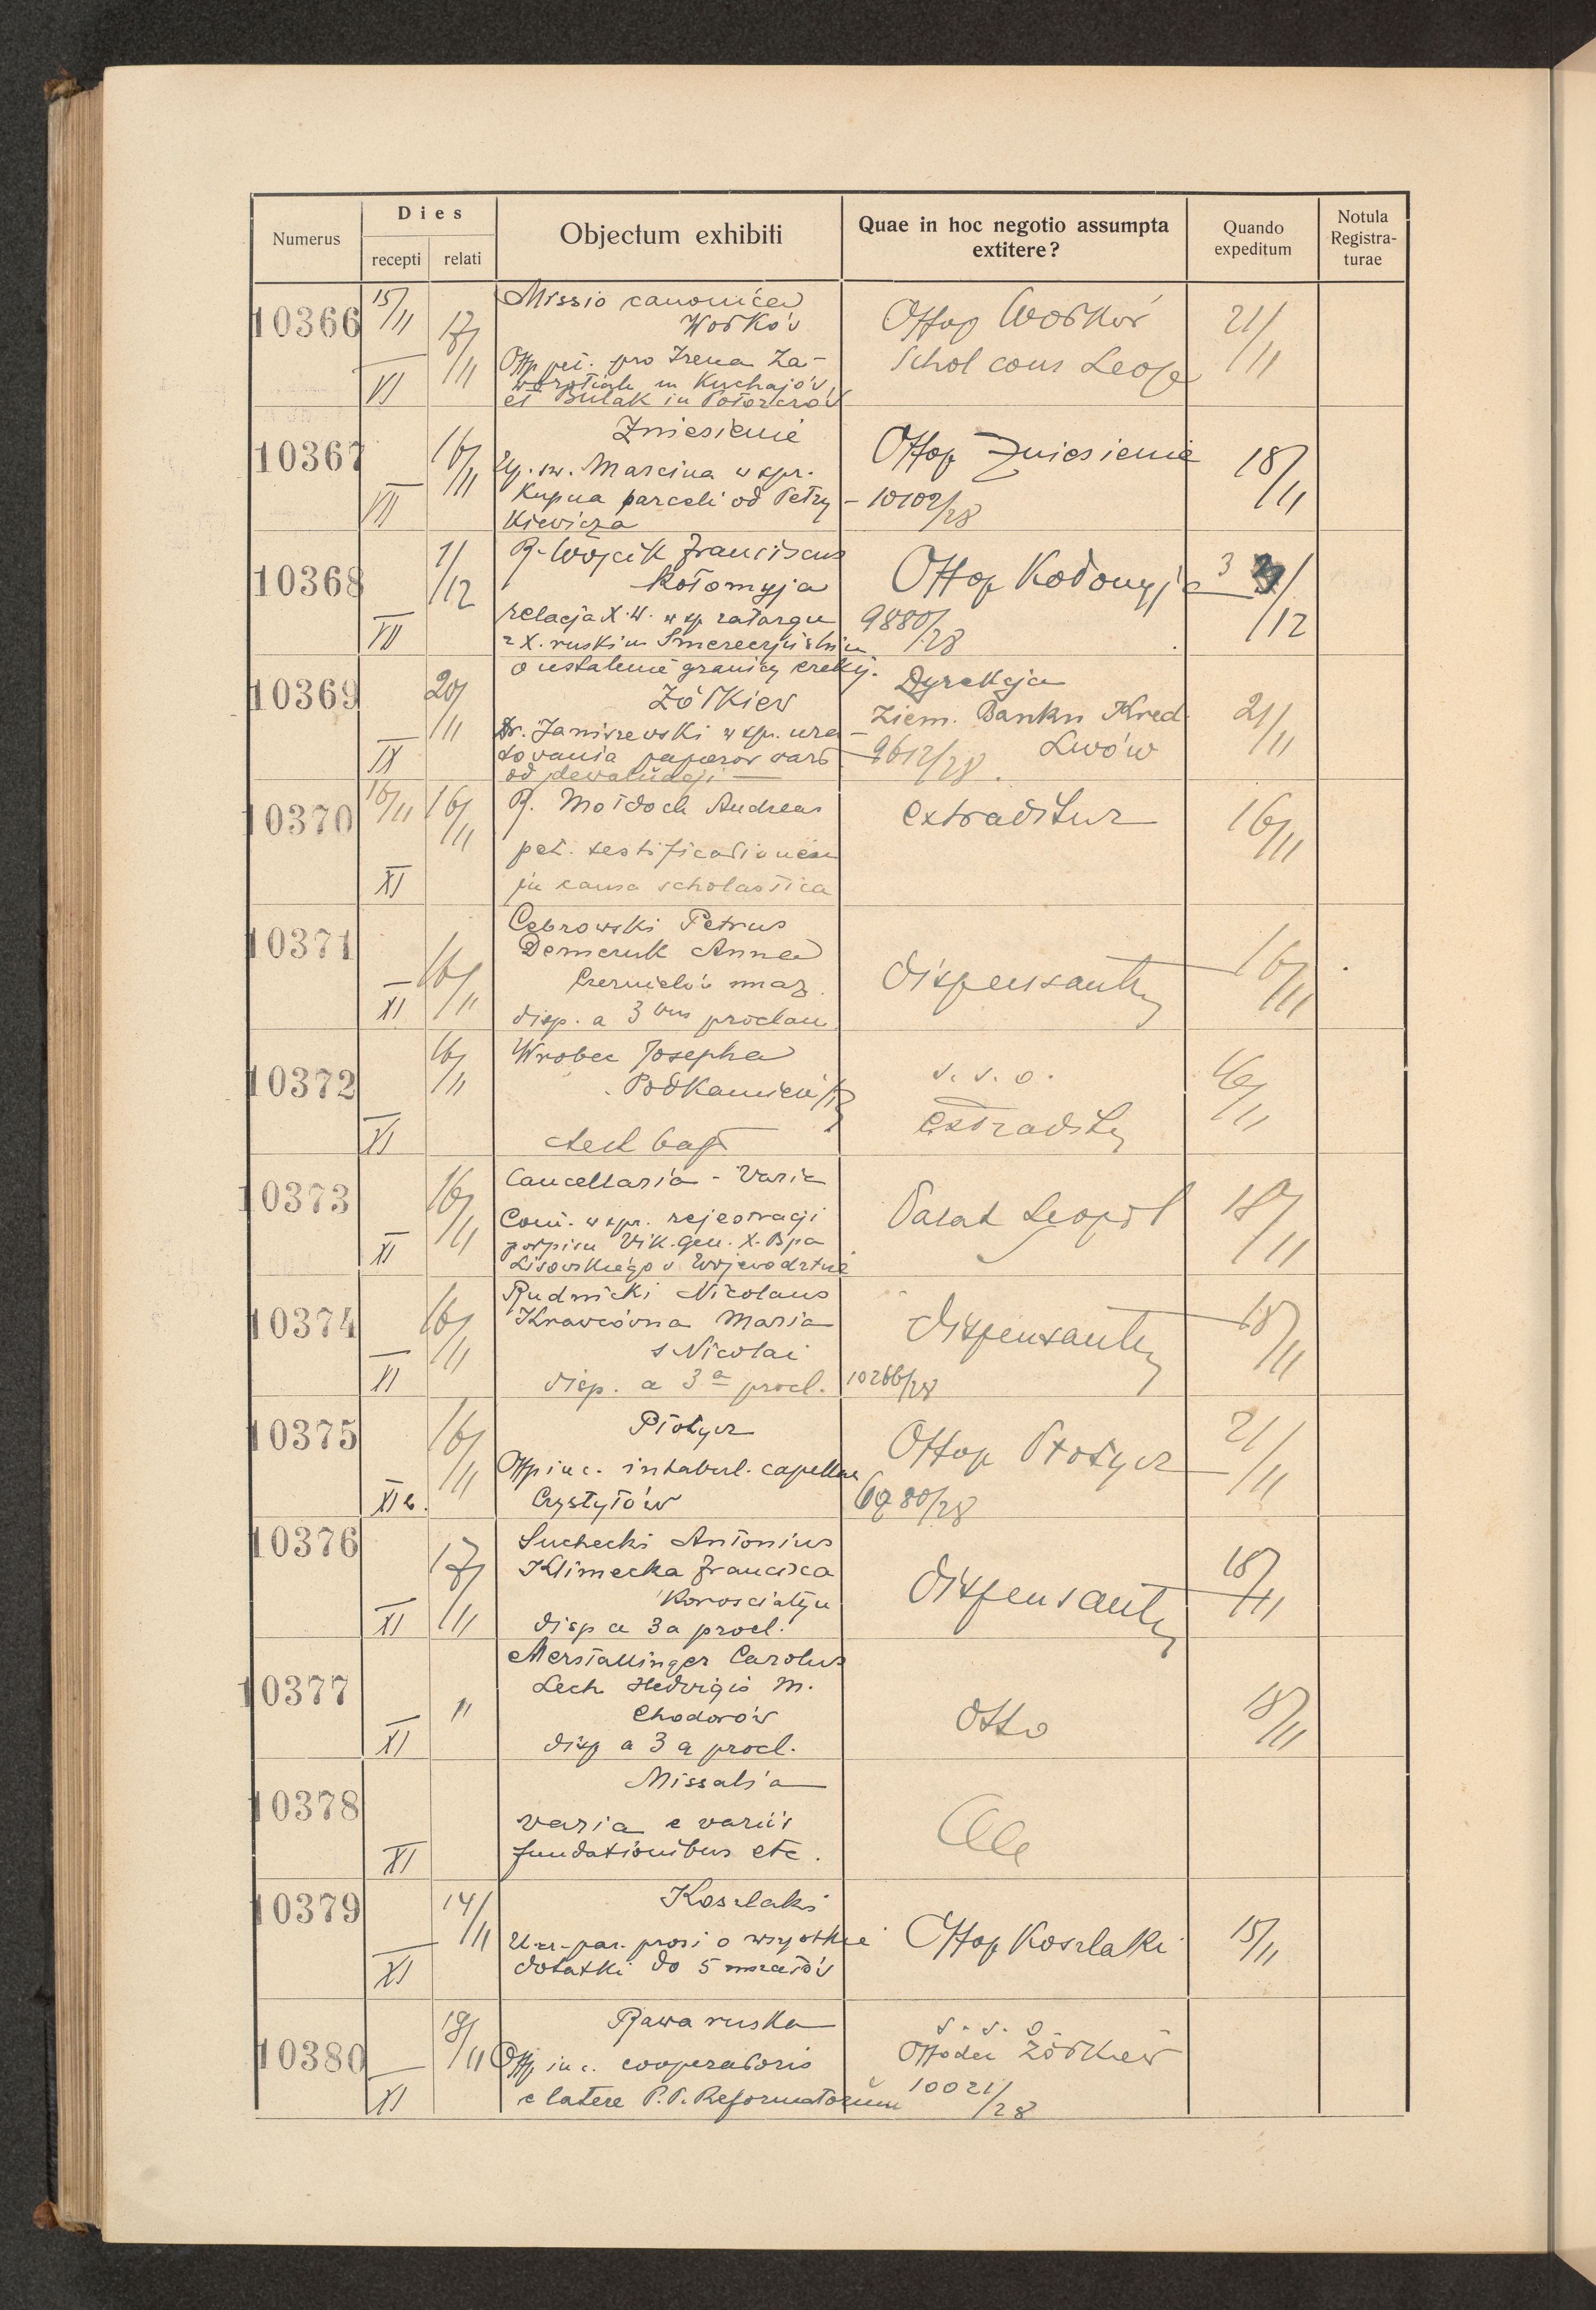 Numerus
Dies
recepti relati
Objectum exhibiti
Quae in hoc negotio assumpta
extitere?
Quando
expeditum
Notula
Registra-
turae
10366
15/11
17/11
VI
Missio canonica
Wołków
Offp pet. pro Irena Za-
in Kuchajów
et Bulak in
Offop Wołków
Schol cons Leop
21/11
10367
16/11
VII
Zniesienie
św. Marcina w spr.
Kupna parceli od Petry
kiewicza
Offop Zniesienie
10102/28
18/11
10368
1/12
VII
R. Wójcik Franciscus
Kołomyja
relacja X. W. w sp zatargu
z X. ruskim
o ustalenie granicy
Offop Kołomyja
9880/28
3/12
10369
20/11
IX
Żółkiew
Dr. Janiszewski w spr. ura
towania papierów wart
od dewaluacji
Dyrekcja
Ziem. Banku Kred
Lwów
9612/28.
21/11
10370
16/11
16/11
XI
R. Mołdoch Andreas
pet. testificationem
in causa scholastica
extraditur
16/11
10371
16/11
XI
Cebrowski Petrus
Demczuk Anna
Czernielów maz.
disp. a 3bus proclam
dispensantur
16/11
10372
16/11
XI
Wrobec Josepha
Podkamień
test bapt
s. s. o.
extraditur
16/11
10373
16/11
XI
Cancellaria - Varia
Com. w spr. rejestracji
podpisu Vik. Gen. X. Bpa
Lisowskiego w Województwie
Palat Leopol
18/11
10374
16/11
XI
Rudnicki Nicolaus
Krawcówna Maria
s Nicolai
disp. a 3a procl.
dispensantur
10266/28
18/11
10375
16/11
XI b.
Płotycz
Offp in c. intabul. capellae
Czystyłów
Offop Płotycz
6980/28
21/11
10376
17/11
XI
Suchecki Antonius
Klimecka Francisca
Korosciatyn
disp a 3a procl.
dispensantur
18/11
10377
"
XI
Merstallinger Carolus
Lech Hedvigis M.
Chodorów
disp a 3a procl.
Otto
18/11
10378
XI
Missalia
varia e variis
fundationibus etc.
10379
14/11
XI
Koszlaki
Urz-par. prosi o wszystkie
dodatki do 5
Offop Koszlaki
15/11
10380
19/11
XI
Rawa ruska
Offp in c. cooperatoris
e latere P.P. Reformatorum
s. s. o.
Offodec Żółkiew
10021/28